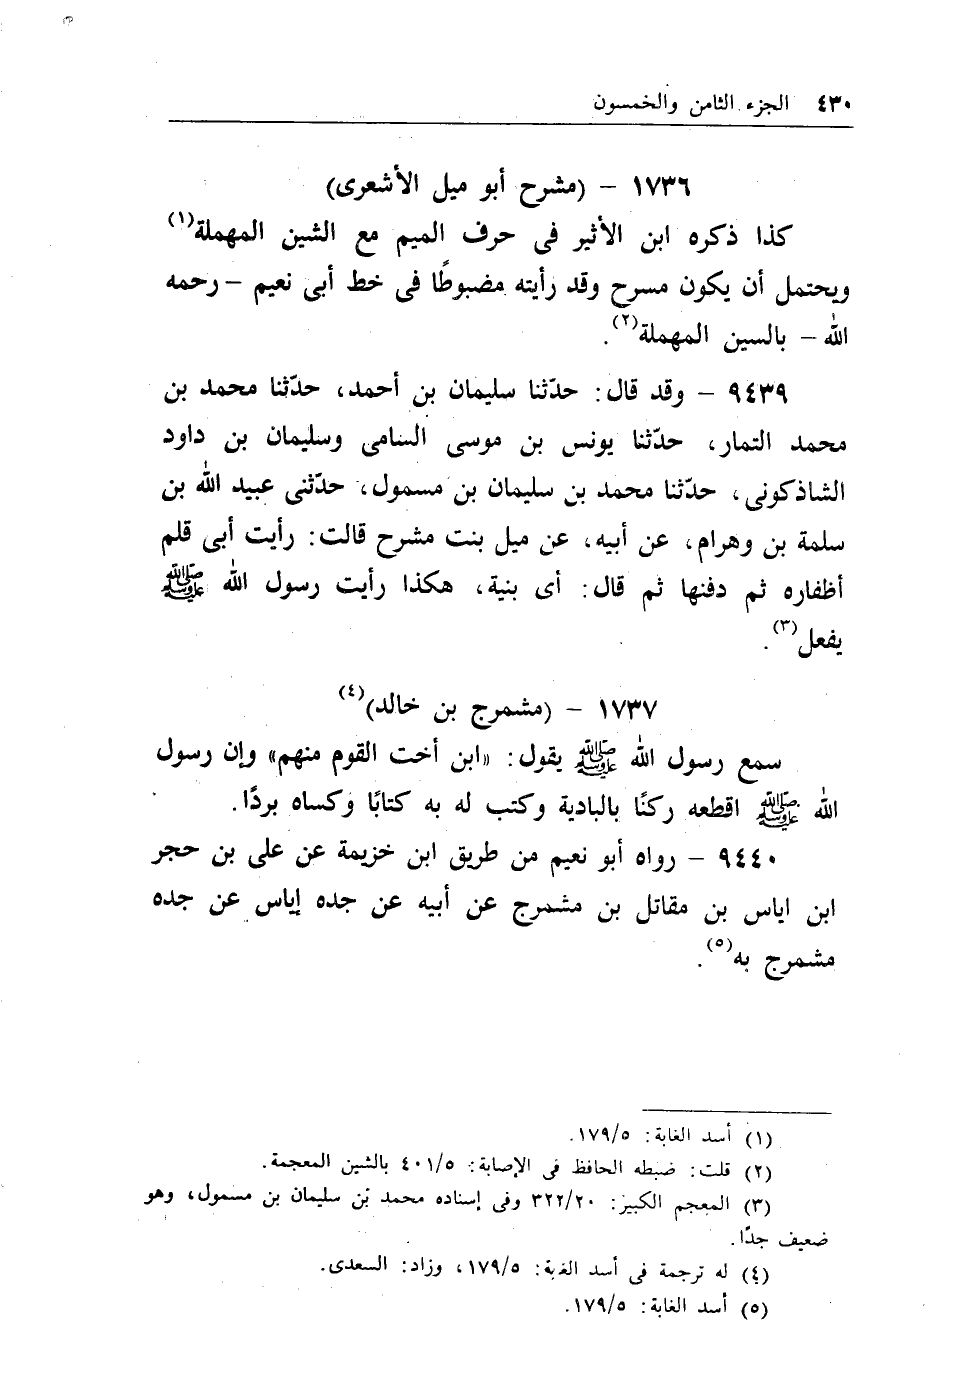 ٤٣٠ الجزء الثامن والخمسون
١٧٣٦ - (مشرح أبو ميل الأشعرى)
كذا ذكره ابن الأثير فى حرف الميم مع الشين المهملة(١)
ويحتمل أن يكون مسرح وقد رأيته مضبوطًا فى خط أبى نعيم - رحمه
الله - بالسين المهملة(٢).
٩٤٣٩ - وقد قال: حدّثنا سليمان بن أحمد، حدّثنا محمد بن
محمد التمار، حدّثنا يونس بن موسى السامى وسليمان بن داود
الشاذكونى، حدّثنا محمد بن سليمان بن مسمول، حدّثنى عبيد الله بن
سلمة بن وهرام، عن أبيه، عن ميل بنت مشرح قالت: رأيت أبى قلم
أظفاره ثم دفنها ثم قال: أى بنية، هكذا رأيت رسول الله ﷺ
يفعل(٣).
١٧٣٧ - (مشمرج بن خالد)(٤)
سمع رسول الله ﷺ يقول: «ابن أخت القوم منهم» وإن رسول
الله ﷺ اقطعه ركنًا بالبادية وكتب له به كتابًا وكساه بردًا.
٩٤٤٠ - رواه أبو نعيم من طريق ابن خزيمة عن على بن حجر
ابن اياس بن مقاتل بن مشمرج عن أبيه عن جده إياس عن جده
مشمرج به(٥).
(١) أسد الغابة: ١٧٩/٥.
(٢) قلت: ضبطه الحافظ فى الإصابة: ٤٠١/٥ بالشين المعجمة.
(٣) المعجم الكبير: ٣٢٢/٢٠ وفى إسناده محمد بن سليمان بن مسمول، وهو
ضعيف جدًا.
(٤) له ترجمة فى أسد الغابة: ١٧٩/٥، وزاد: السعدى.
(٥) أسد الغابة: ١٧٩/٥.